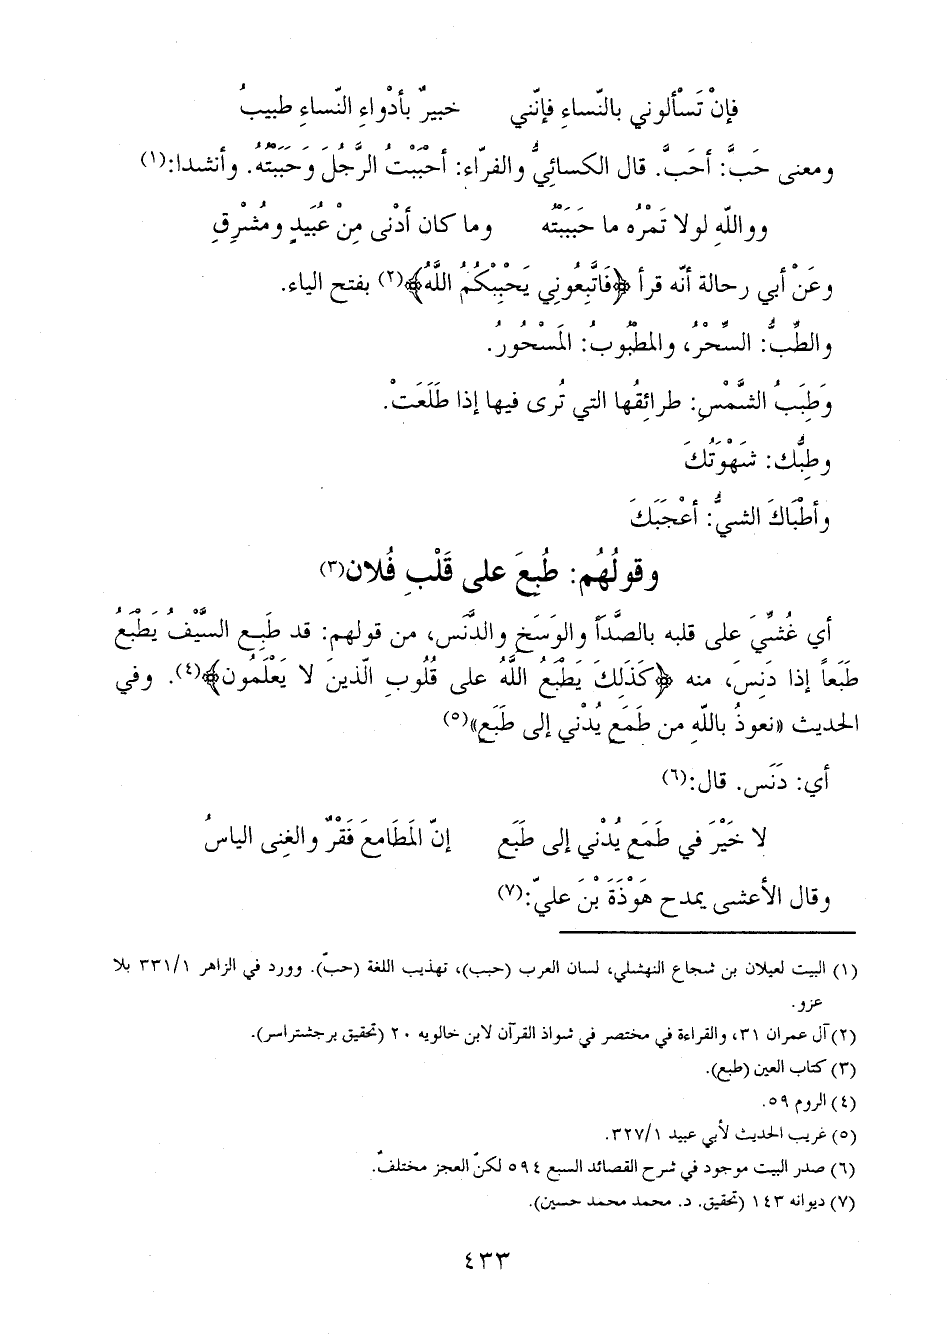 فإنْ تَسْألوني بالنّساءِ فإنّني خبيرٌ بأدْواءِ النّساءِ طبيبُ
ومعنى حَبَّ: أحَبَّ. قال الكسائيُّ والفرّاء: أحْبَبْتُ الرَّجُلَ وَحَبَبْتُهُ. وأنشدا:(١)
وواللّهِ لولا تَمْرُه ما حَبَبْتُه وما كان أدْنى مِنْ عُبَيدٍ ومُشْرِقِ
وعَنْ أبي رحالة أنّه قرأ ﴿فَاتَّبِعُونِي يَحْبِبْكُمُ اللَّهُ﴾(٢) بفتح الياء.
والطِّبُّ: السِّحْرُ، والمَطْبُوبُ: المَسْحُورُ.
وَطِبَبُ الشَّمْسِ: طرائِقُها التي تُرى فيها إذا طَلَعَتْ.
وطِبُّك: شَهْوَتُكَ
وأطْبَاكَ الشيُّ: أعْجَبَكَ
وقولُهُم: طُبِعَ على قَلْبِ فُلان(٣)
أي غُشِّيَ على قلبه بالصَّدَأ والوَسَخِ والدَّنَس، من قولهم: قد طَبِع السَّيْفُ يَطْبَعُ
طَبَعاً إذا دَنِسَ، منه ﴿كَذَلِكَ يَطْبَعُ اللَّهُ على قُلُوبِ الّذينَ لا يَعْلَمُون﴾(٤). وفي
الحديث «نعوذُ باللّهِ من طَمَعٍ يُدْني إلى طَبَعٍ»(٥)
أي: دَنَس. قال:(٦)
لا خَيْرَ في طَمَعٍ يُدْني إلى طَبَعٍ إنّ المَطَامِعَ فَقْرٌ والغِنى الياسُ
وقال الأعشى يمدح هَوْذَةَ بْنَ عليّ:(٧)
(١) البيت لعيلان بن شجاع النهشلي، لسان العرب (حبب)، تهذيب اللغة (حبّ). وورد في الزاهر ٣٣١/١ بلا
عزو.
(٢) آل عمران ٣١، والقراءة في مختصر في شواذ القرآن لابن خالويه ٢٠ (تحقيق برجشتراسر).
(٣) كتاب العين (طبع).
(٤) الروم ٥٩.
(٥) غريب الحديث لأبي عبيد ٣٢٧/١.
(٦) صدر البيت موجود في شرح القصائد السبع ٥٩٤ لكنّ العجز مختلفٌ.
(٧) ديوانه ١٤٣ (تحقيق. د. محمد محمد حسين).
٤٣٣